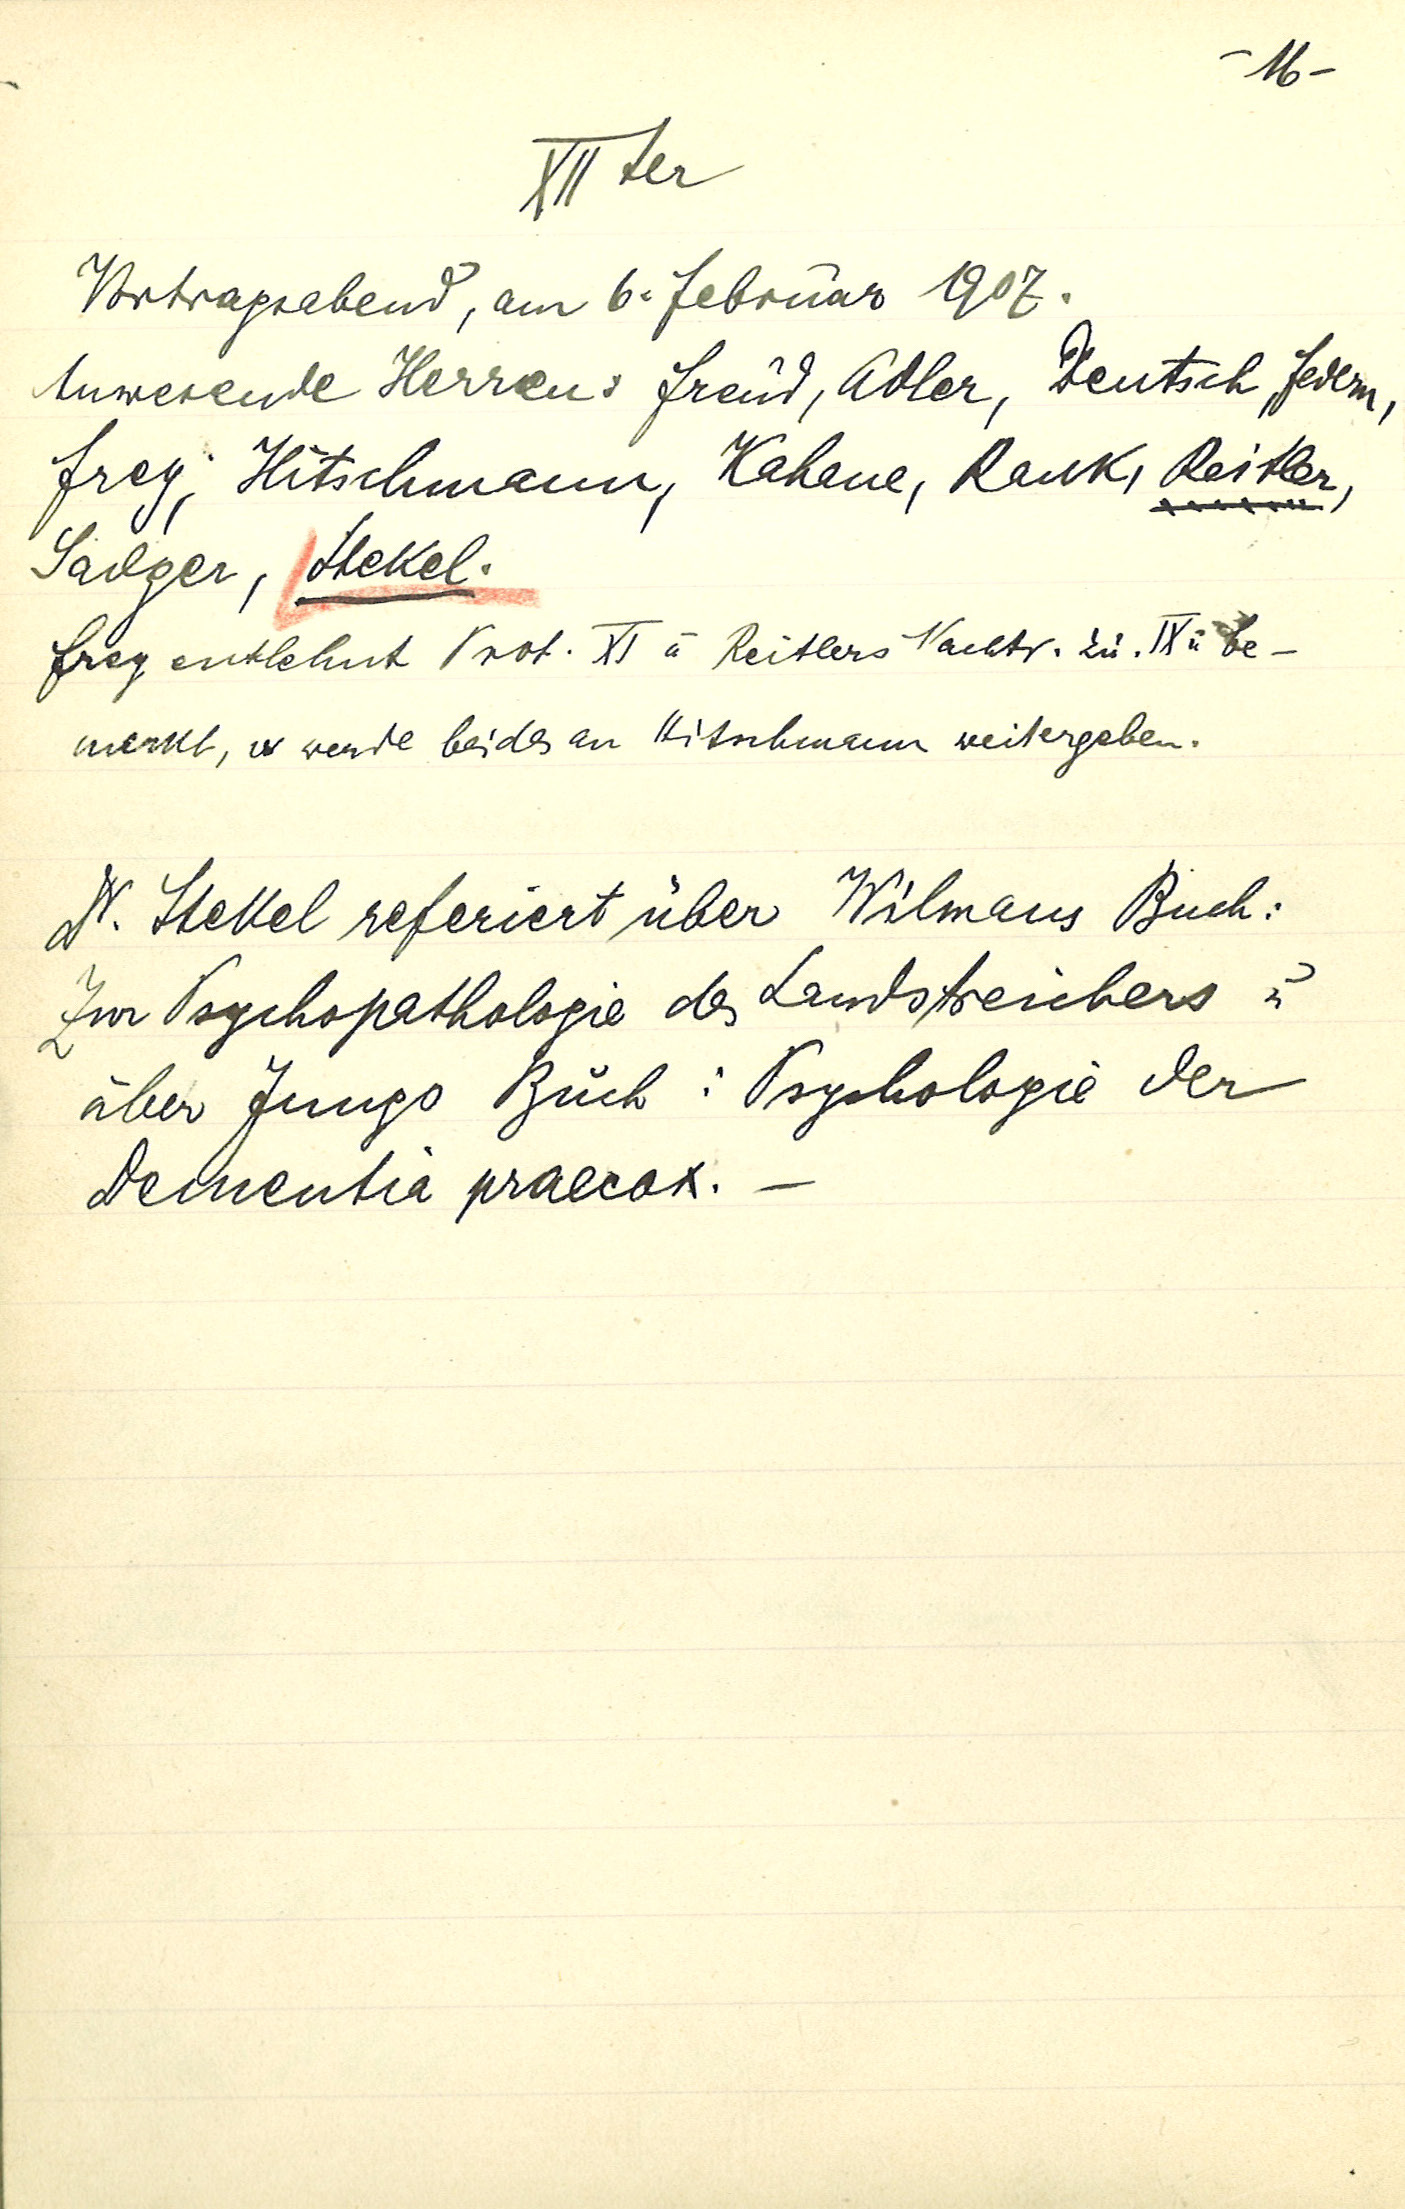 - 16 -
XII ter
Vortragsabend, am 6. Februar 1907.
Anwesende Herren: Freud, Adler, Deutsch, Federn,
Frey, Hitschmann, Kahane, Rank, Reitler,
Sadger, Stekel.
Frey entlehnt Prot. XI u Reitlers Nachtr. zu. IX u be-
merkt, er werde beides an Hitschmann weitergeben.
Dr. Stekel referiert über Wilmans Buch:
Zur Psychopathologie des Landstreichers u
über Jungs Buch: Psychologie der
Dementia praecox. -